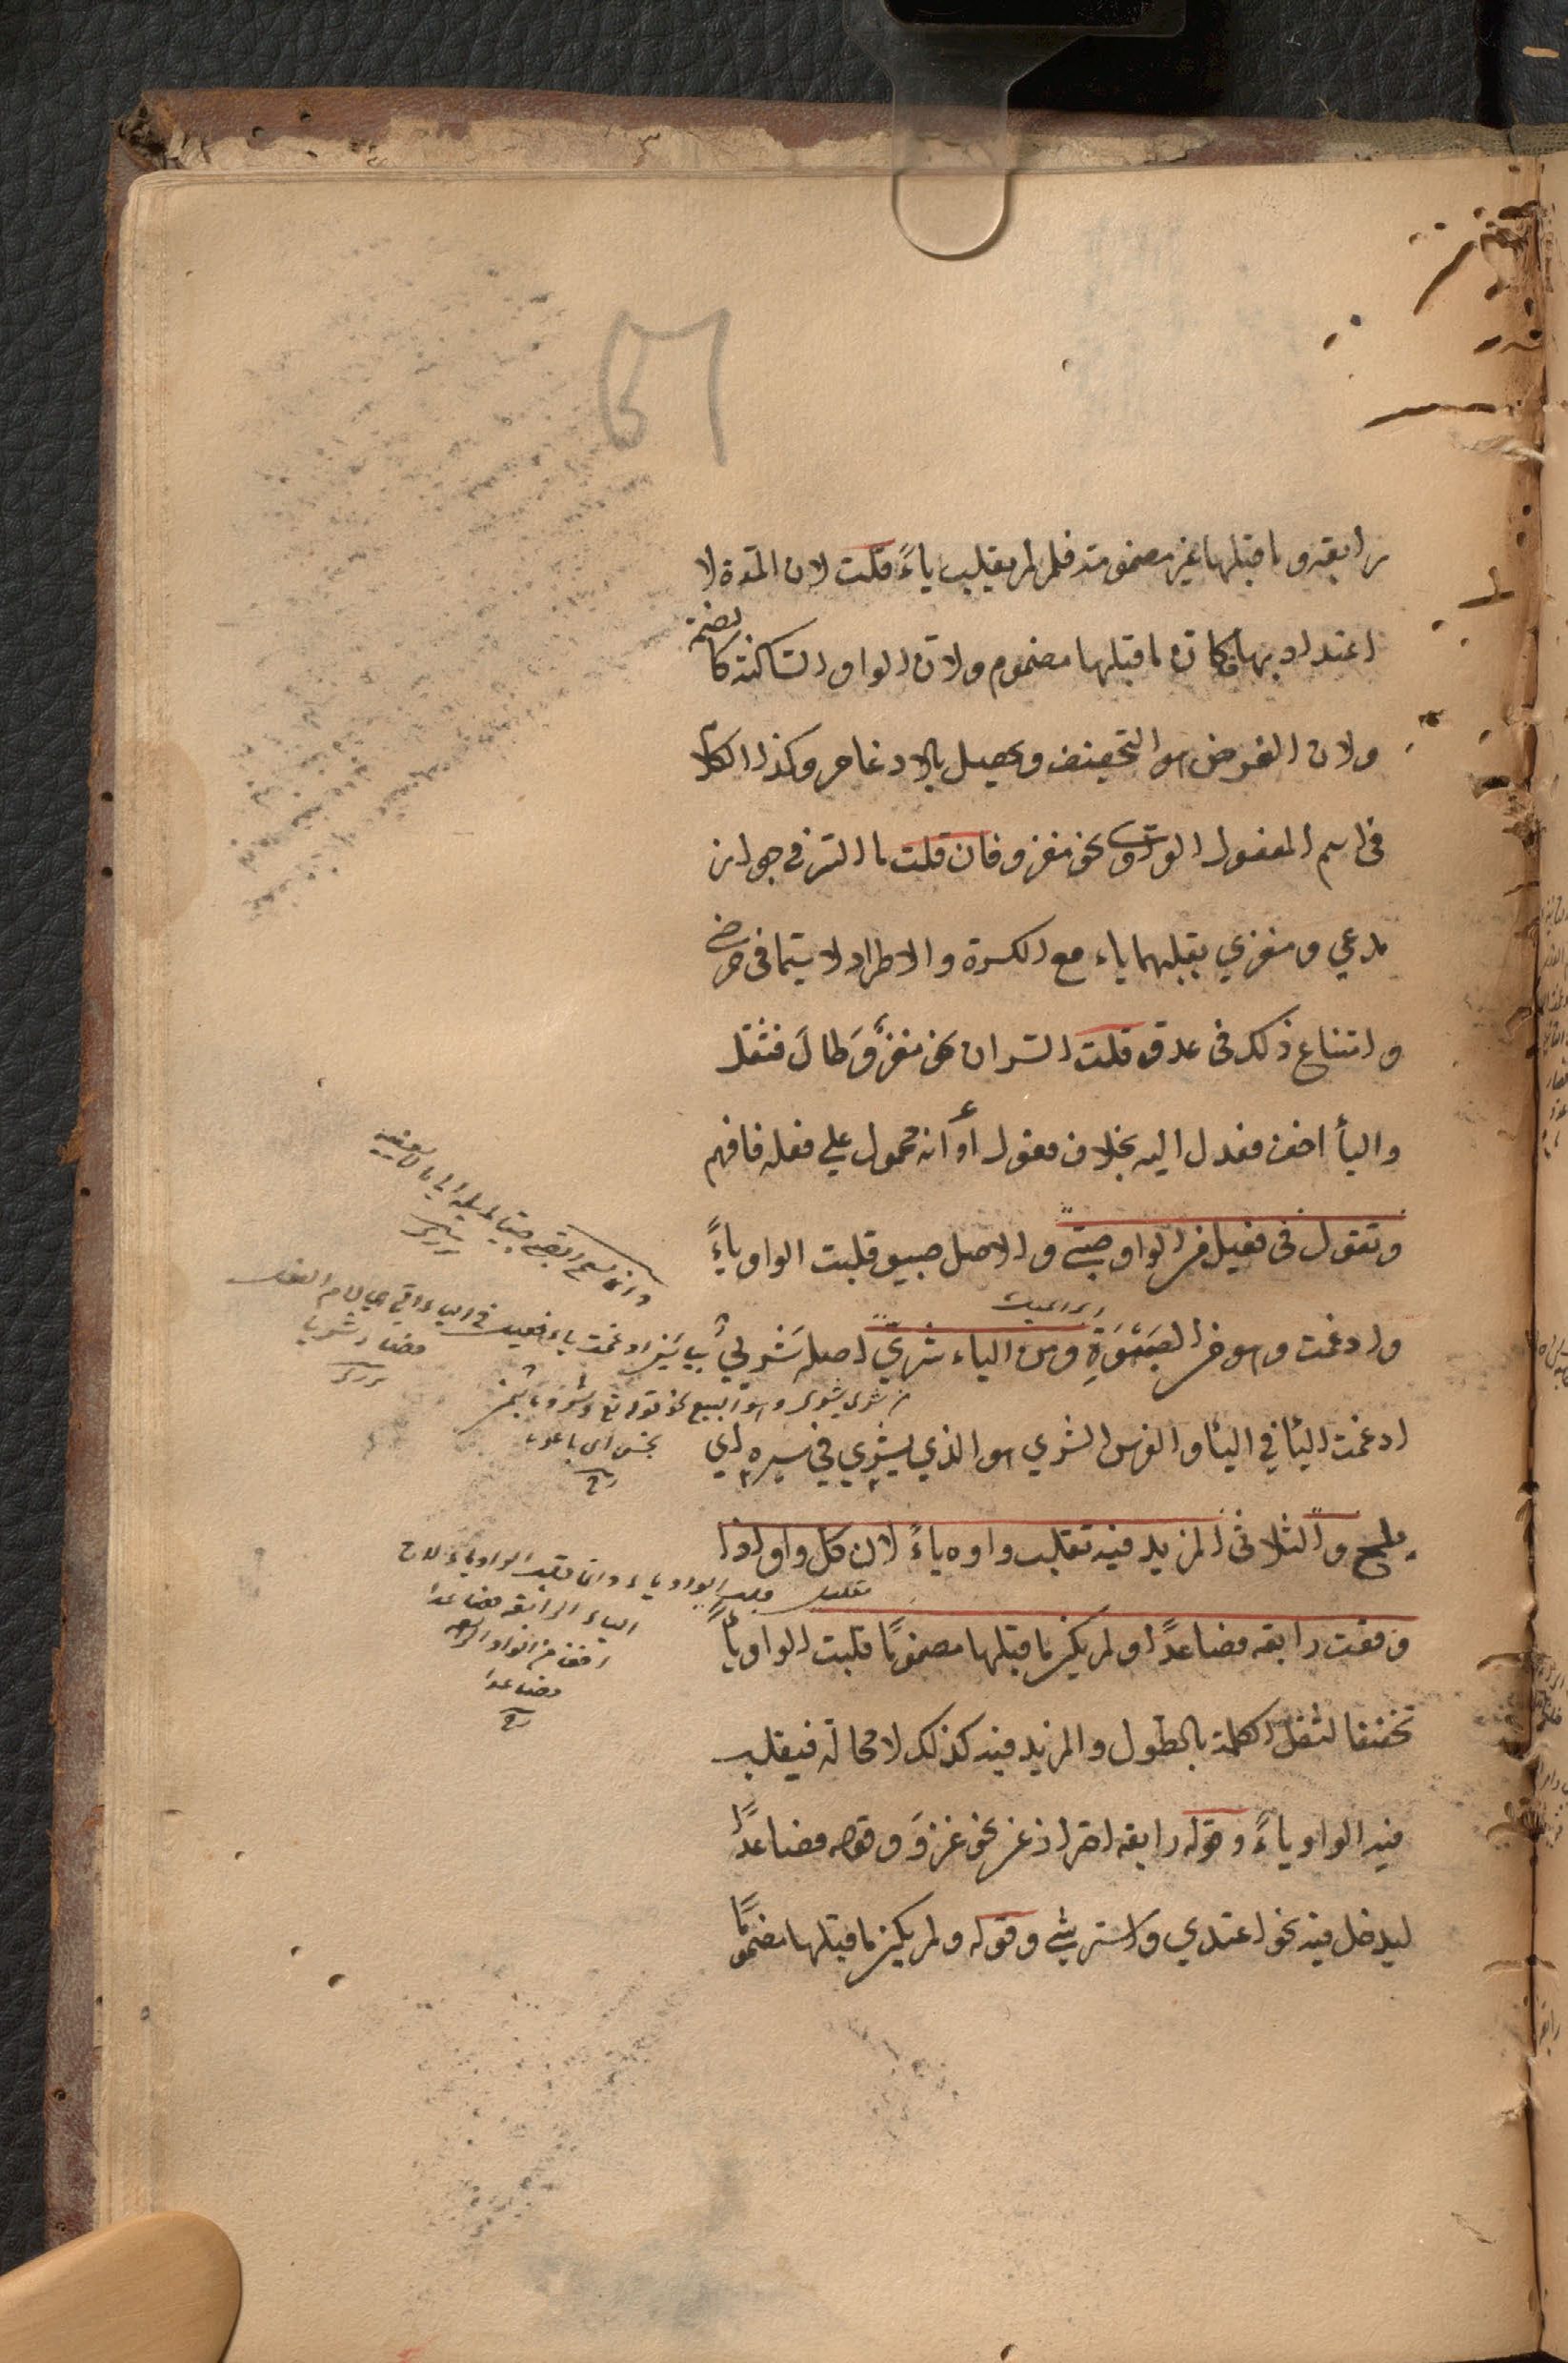 رابعة وما قبلها غير مضمومة فلم لم يقلب ياءً قلت لان المدة لا
اعتداد بها فكان ما قبلها مضموم ولان الواو الساكنة كالضمة
ولان الغرض هو التخفيف ويحصل بالادغام وكذا الكلام
فى اسم المفعول الواوي نحو مغزو فان قلت ما السر فى جواز
مدعي ومغزي بقلبهما ياء مع الكسرة والاطراد لا سيما فى مرضي
وامتناع ذلك فى عدو قلت السر ان نحو مغزوّ طال فثقل
واليأ اخف فعدل اليه بخلاف فعول أو أنه محمول علي فعله فافهم
وتقول فى فعيل من الواو صبيّ والاصل صبيو قلبت الواو ياءً
وادغمت وهو من الصبوة ومن الياء شريّ اصله شريي بيائين
ادغمت اليأ في اليأ والفرس الشري هو الذي يشري في سيره اي
يلح والثلاثى المزيد فيه تقلب واوه ياءً لان كل واو اذا
وقعت رابعة فصاعدًا ولم يكن ما قبلها مضمومًا قلبت الواو ياءً
تخفيفا لثقل الكلمة بالطول والمزيد فيه كذلك لا محالة فيقلب
فيه الواو ياءً وقوله رابعة احتراز عن نحو غزوَ وقوله فصاعدًا
ليدخل فيه نحو اعتدي واسترشي وقوله ولم يكن ما قبلها مضمومًا
ادغمت ياء فعيل فى الياء التي هي لام الفعل
فصار شريا
قلبت الواو ياء وانما قلبت الواو ياء لان
الياء الرابعة فصاعدا
اخف من الواو الرابعة
فصاعدا